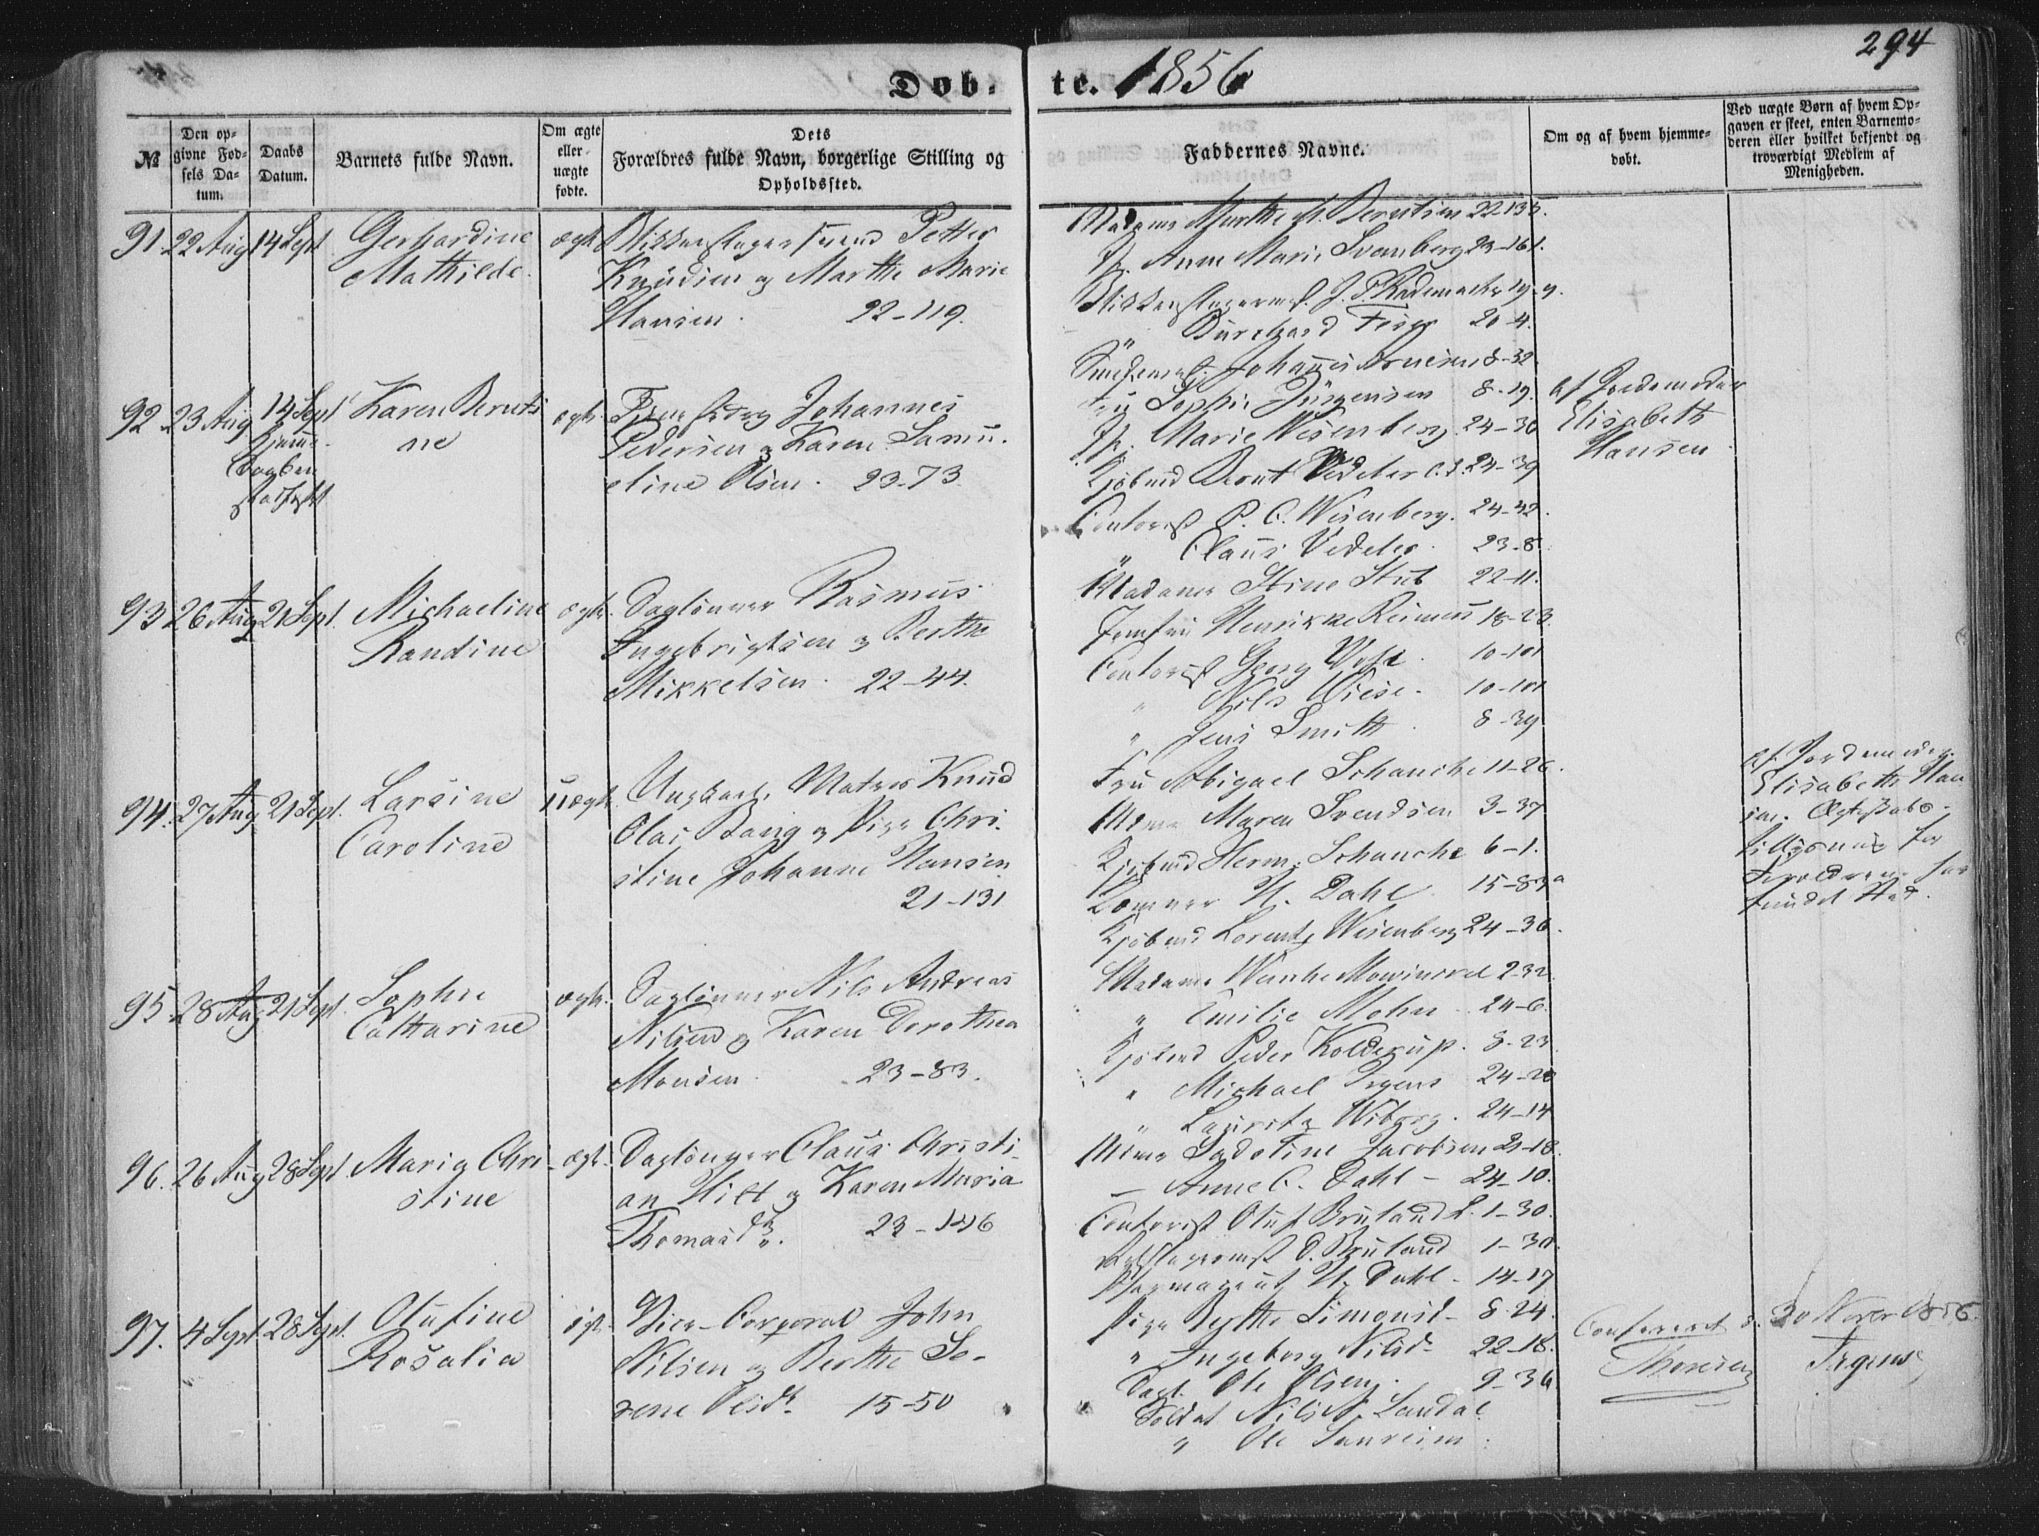 294
Døb- te. 1856
№
Den op-
givne Fød-
sels Da-
tum.
Daabs
Datum.
Barnets fulde Navn.
Om ægte
eller
uægte
fødte.
Dets
Forældres fulde Navn, borgerlige Stilling og
Opholdssted.
Faddernes Navne.
Om og af hvem hjemme-
døbt.
Ved uægte Børn af hvem Op-
gaven er skeet, enten Barnemo-
deren eller hvilket bekjendt og
troværdigt Medlem af
Menigheden.
91. 22 Aug 14 Sept Gerhardine
Mathilde.
ægte Blikkenslagersvend Petter
Knudsen og Marthe Marie
Hansen. 22-119.
Madame Marthe M. Berntsen 22-135.
Jf. Anne Marie Svanberg 23-161.
Blikkenslagerm. J. F. Rademacher 19-9.
" Burchard 20-4.
Johannes 8-32.
92. 23 Aug 14 Sept
hjemme
Daaben
stadfæst
Karen Bernti
ne
ægte. Johannes
Pedersen og Karen Samu-
eline Olsen. 23-73
Fru Sophie Jürgensen 8-19.
Jf. Marie Wesenberg 24-36
Kjøbmd Bernt Vedeler 24-39
Contorist P. C. Wesenberg. 24-42.
" Claus Vedeler. 23-8.
af Jordemoder
Elisabeth
Hansen.
93. 26 Aug 21 Sept. Michaeline
Randine
ægte. Daglønner Rasmus
Ingebrigtsen og Berthe
Mikkelsen. 22-44.
Madame Stine Stub 22-11.
Jomfru Henrikke Reimers 18-23.
Contorist Georg 10-101
" Nils Wiese. 10-101
" Jens Smith. 8-39
94. 27 Aug 21 Sept. Larsine
Caroline
uægte. Ungkarl, Matros Knud
Olai Bang og Pige Chri-
stine Johanne Hansen
21-131
Fru Abigael Schanche 11-26.
Mdme Maren Svendsen 3-37
Kjøbmd Herm. Schanche 6-1.
H. Dahl 15-83a
Kjøbmd Lorentz Wesenberg 24-36.
af Jordemoder
Elisabeth Han
sen. Ægteskabs-
for
Forældrene
95. 28 Aug 21 Sept. Sophie
Catharine
ægte. Daglønner Nils Andreas
Nilsen og Karen Dorothea
Monsen. 23-83.
Madame Wenke Mowinckel 2-32.
" Emilie Mohn 24-6.
Kjøbmd Peder Kolderup. 8-23.
" Michael Irgens 24-20
" Lauritz Wiberg. 24-14
96. 26 Aug 28 Sept. Marie Chri-
stine
ægte. Daglønner Claus Christi-
an Hilt og Karen Maria
Thomasdr. 23-146
Mdme Jacobsen 21-18.
— Anne C. Dahl - 24-10.
Contorist Oluf Bruland 1-30.
D. Bruland 1-30.
H. Dahl - 14-17
97. 4 Sept. 28 Sept. Olufine
Rosalia
Vice-Corporal John
Nilsen og Berthe Se-
rene Olsdr. 15-50
Pige Berthe Simonsd. 8-24.
" Ingeborg Nilsd. 22-18.
Dagl. Ole Olsen. 9-36.
Soldat Nils Landal.
" Ole
Confereret d. 30 Novbr 1856.
Irgens